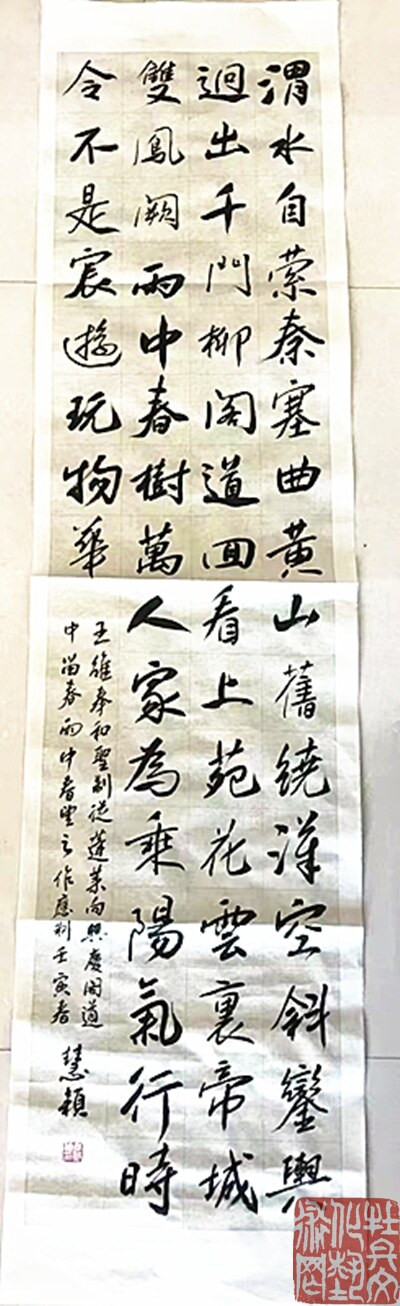 渭水自萦秦塞曲黃山舊繞漢空斜鑾輿
迥出千門柳閣道回看上苑花雲裏帝城
雙鳳闕雨中春樹萬人家為乘陽氣行時
令不是宸遊玩物華
王維奉和聖制從蓬萊向興慶閣道
中留春雨中春望之作應制壬寅春 慧穎